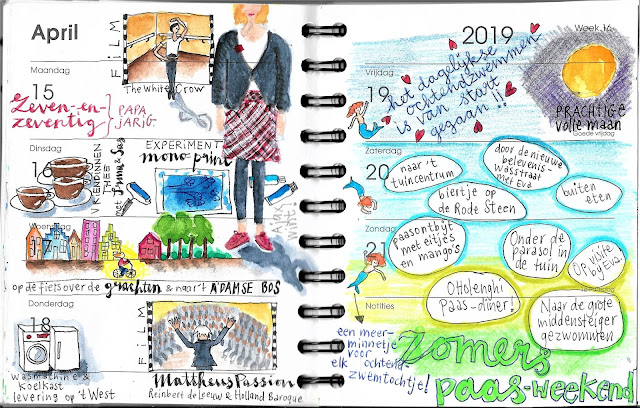 April
FILM
The White Crow
Maandag
15
Zeven-en-
zeventig
PAPA
JARIG
Dinsdag
THEE
EXPERIMENT
mono-print
op de fiets over de grachten & naar 't A'DAMSE BOS
Donderdag
18
wasmachine &
koelkast
levering op 't West
FILM
Mattheus Passion
Reinbert de Leeuw & Holland Baroque
2019
Week 16
Vrijdag
19
het dagelijkse
ochtendzwemmen
is van start
gegaan!!
PRACHTIGE
volle maan
Goede vrijdag
Zaterdag
20
naar 't
tuincentrum
door de nieuwe
belevenis-
wasstraat
met Eva
biertje op
de Rode Steen
buiten
eten
Zondag
21
paasontbyt
met eitjes
en mango's
Onder de
parasol in
de tuin
op visite
by Eva
Notities
Ottolenghi
Paas-diner!
Naar de grote
middensteiger
gezwommen
een meer-
minnetje
voor
elk ochtend-
zwemtochtje!
Zomers
paas-weekend